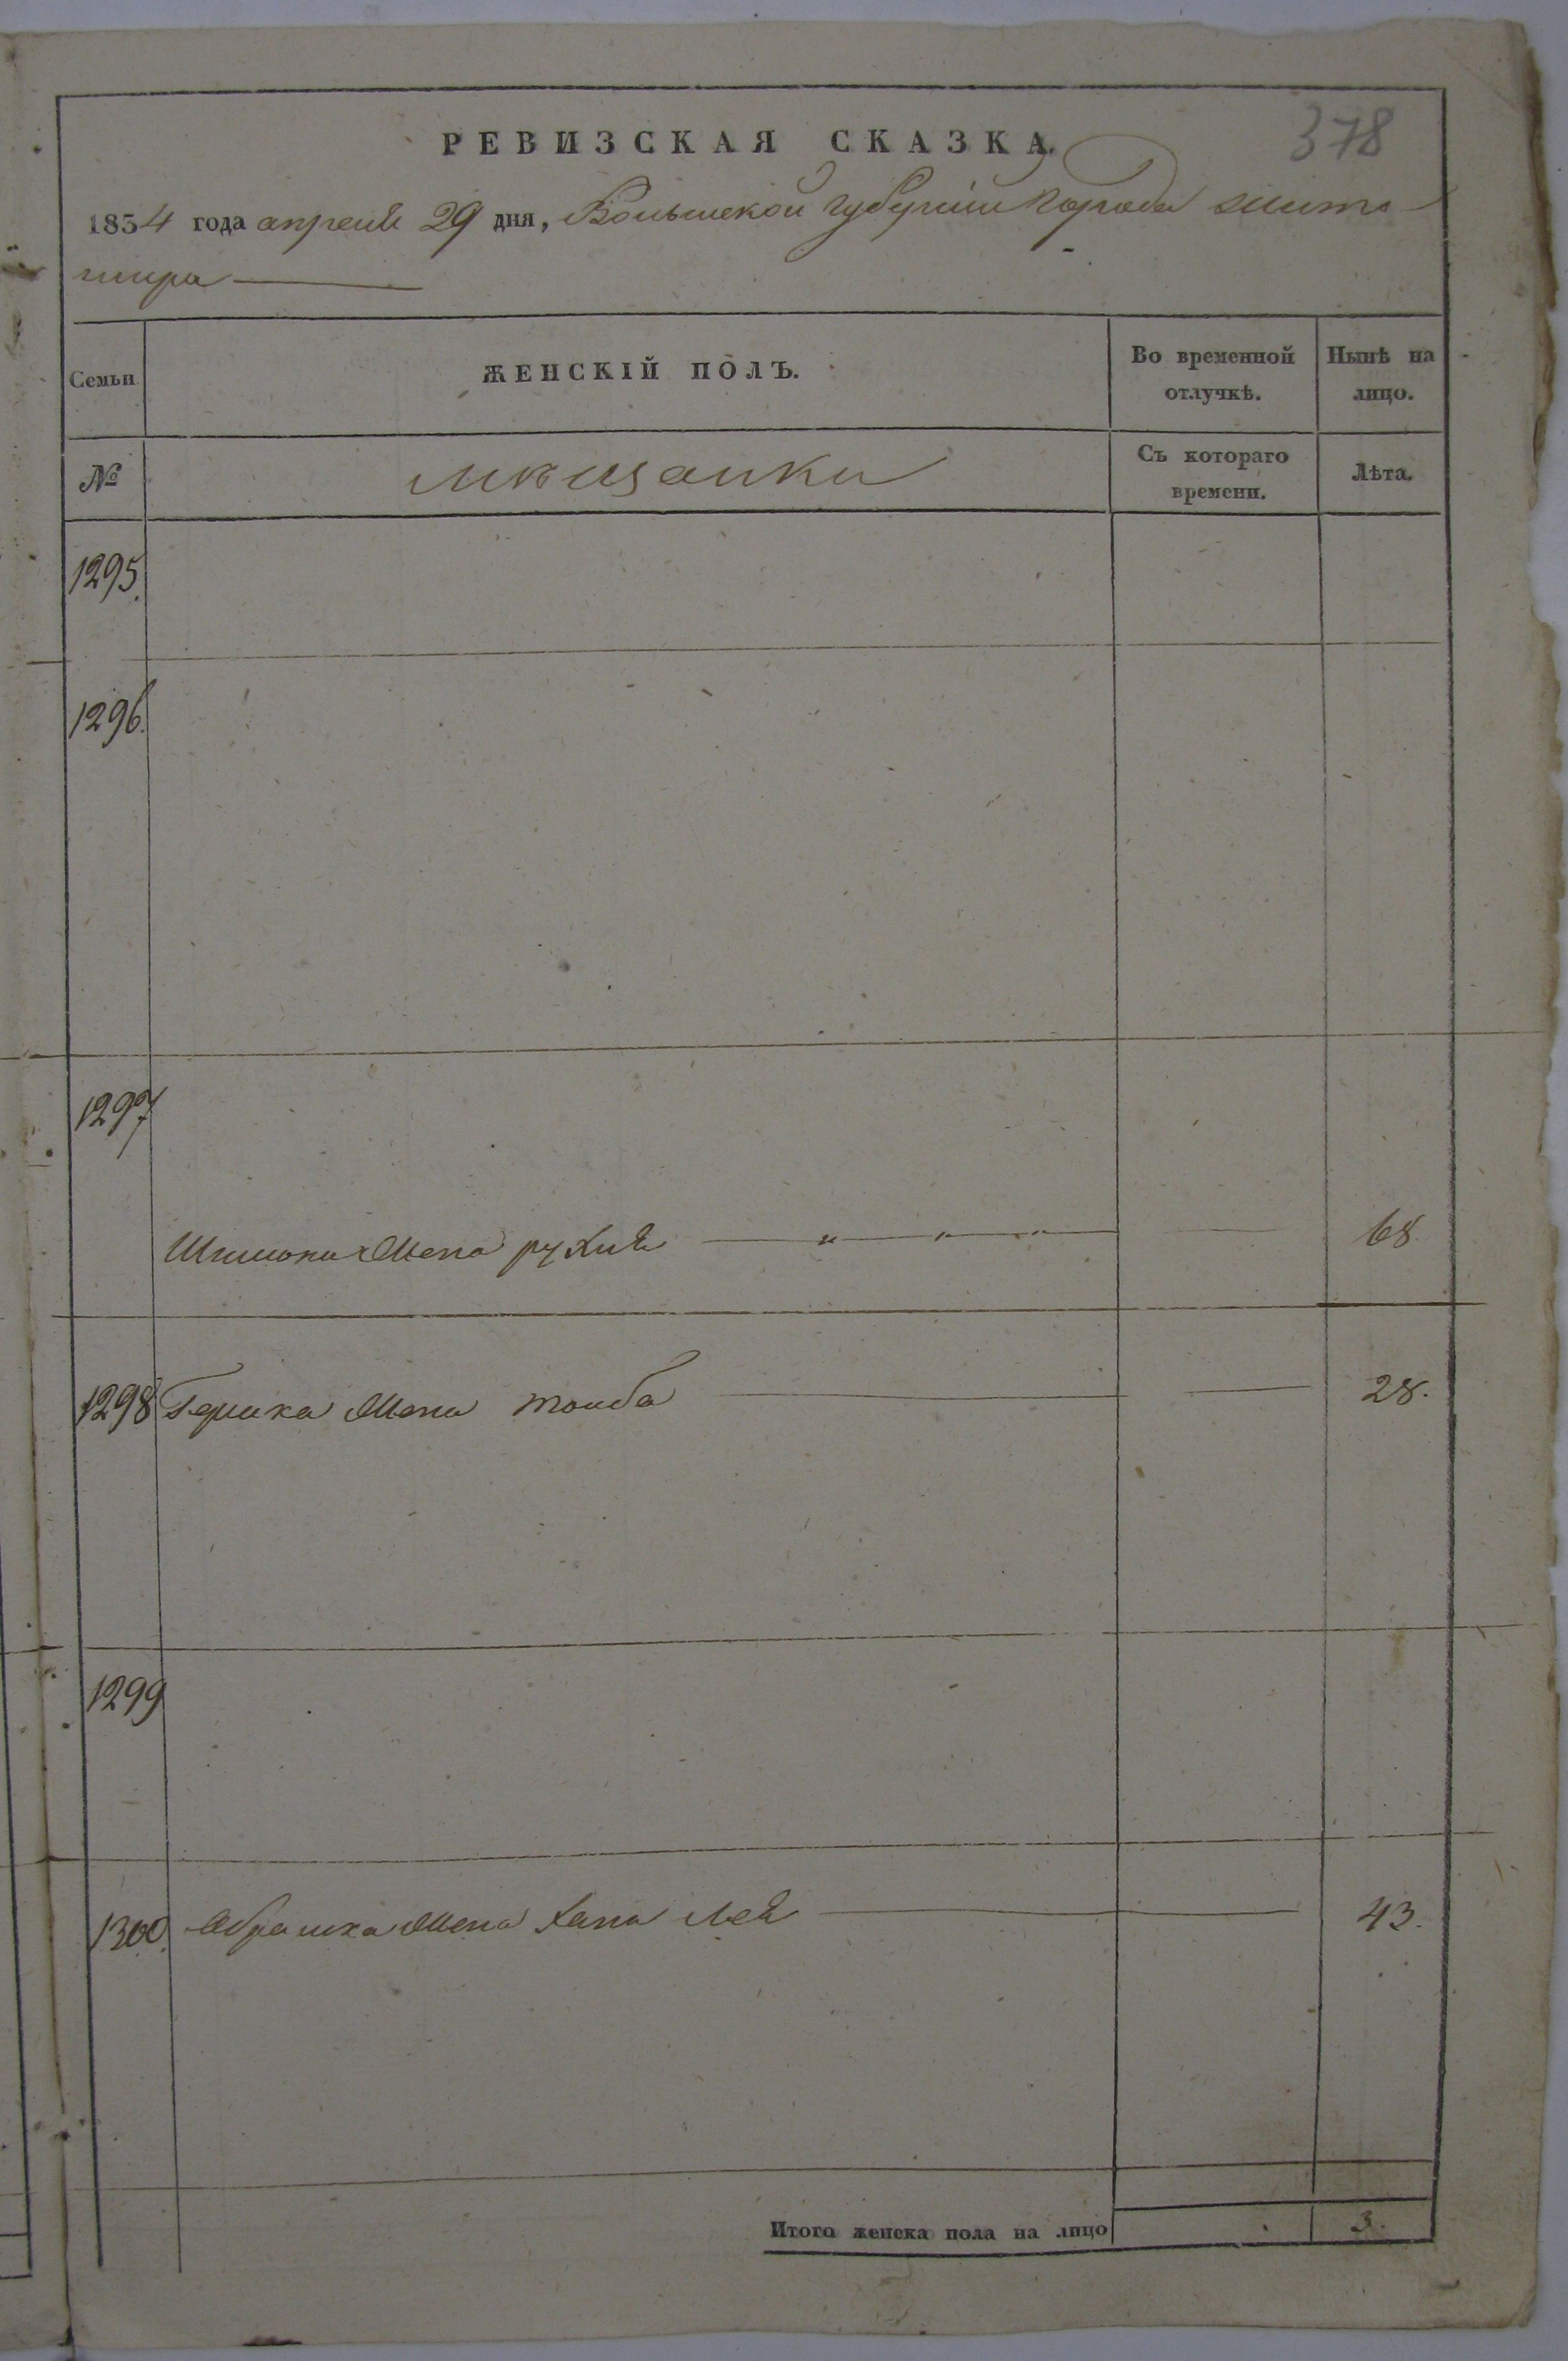 РЕВИЗСКАЯ СКАЗКА.
378
1854 года апреля 29 дня, Волынской губернии города Жито-
мира
Семьи
ЖЕНСКІЙ ПОЛЪ.
Во временной отлучкѣ.
Нынѣ на лицо.
№
мѣщанки
Съ котораго времени.
Лѣта.
1295.
1296.
1297
Шимона жена рухля 68.
1298 Гершка жена тоиба 28.
1299
1300. Абрашка жена Хана Лея 43.
Итого женска пола на лицо 3.